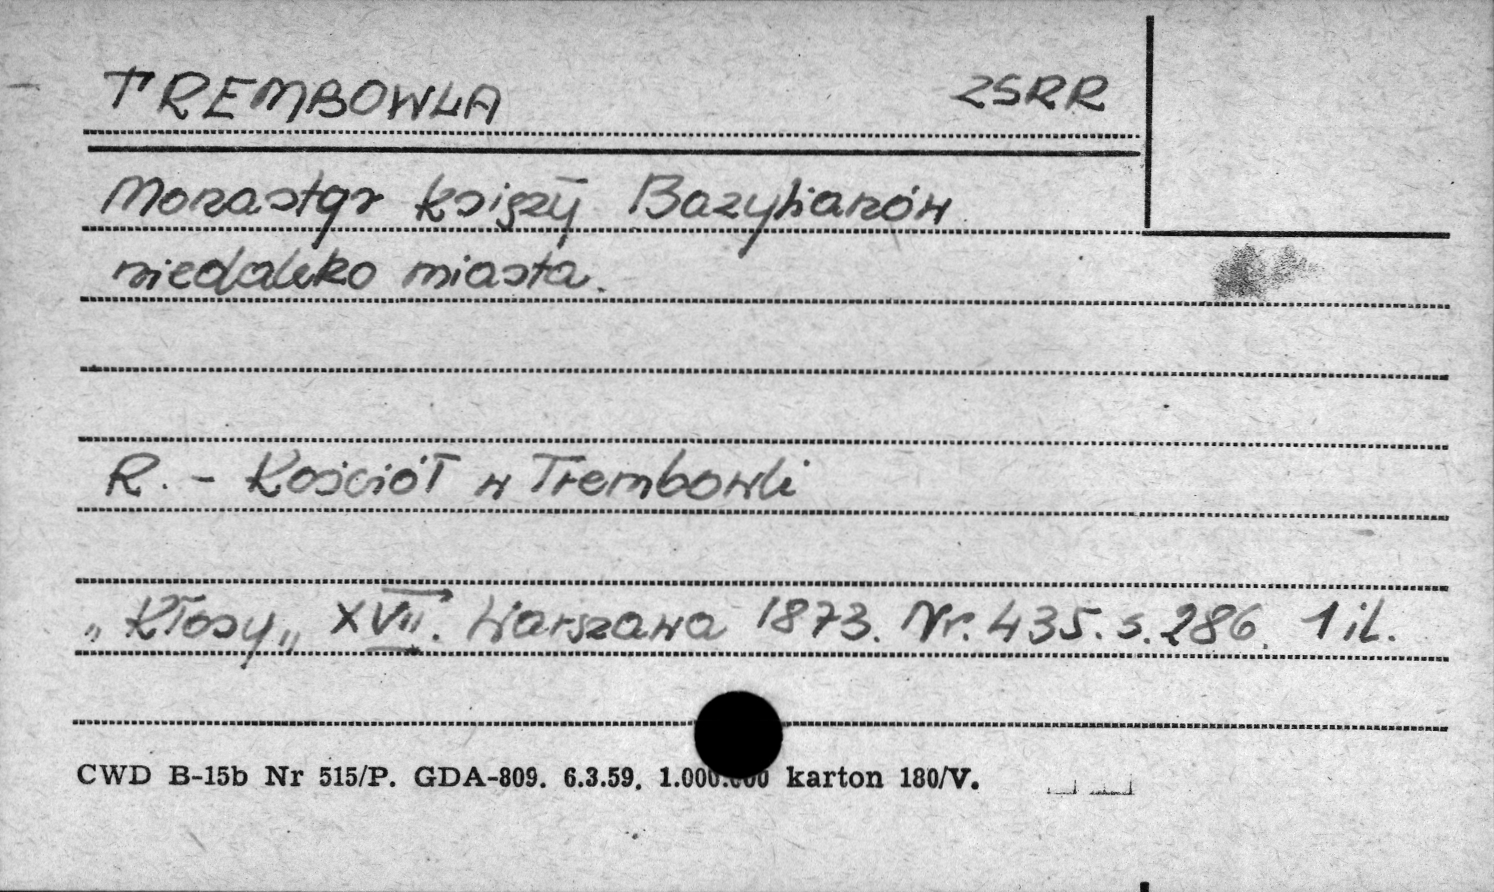 TREMBOWLA ZSRR
Monastyr księży Bazylianów
niedaleko miasta.
R. - Kościół w Trembowli
„Kłosy„ XVII. Warszawa 1873. Nr. 435. s. 286. 1 il.
CWD B-15b Nr 515/P. GDA-809. 6.3.59. 1.000.000 karton 180/V.